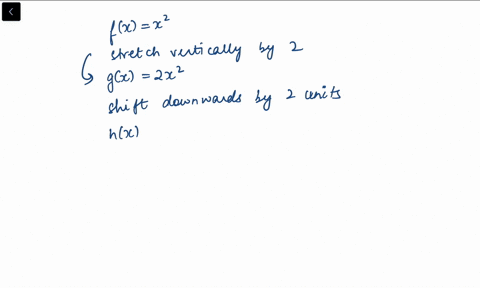 f(x) = x²
stretch vertically by 2
g(x) = 2x²
shift downwards by 2 units
h(x)